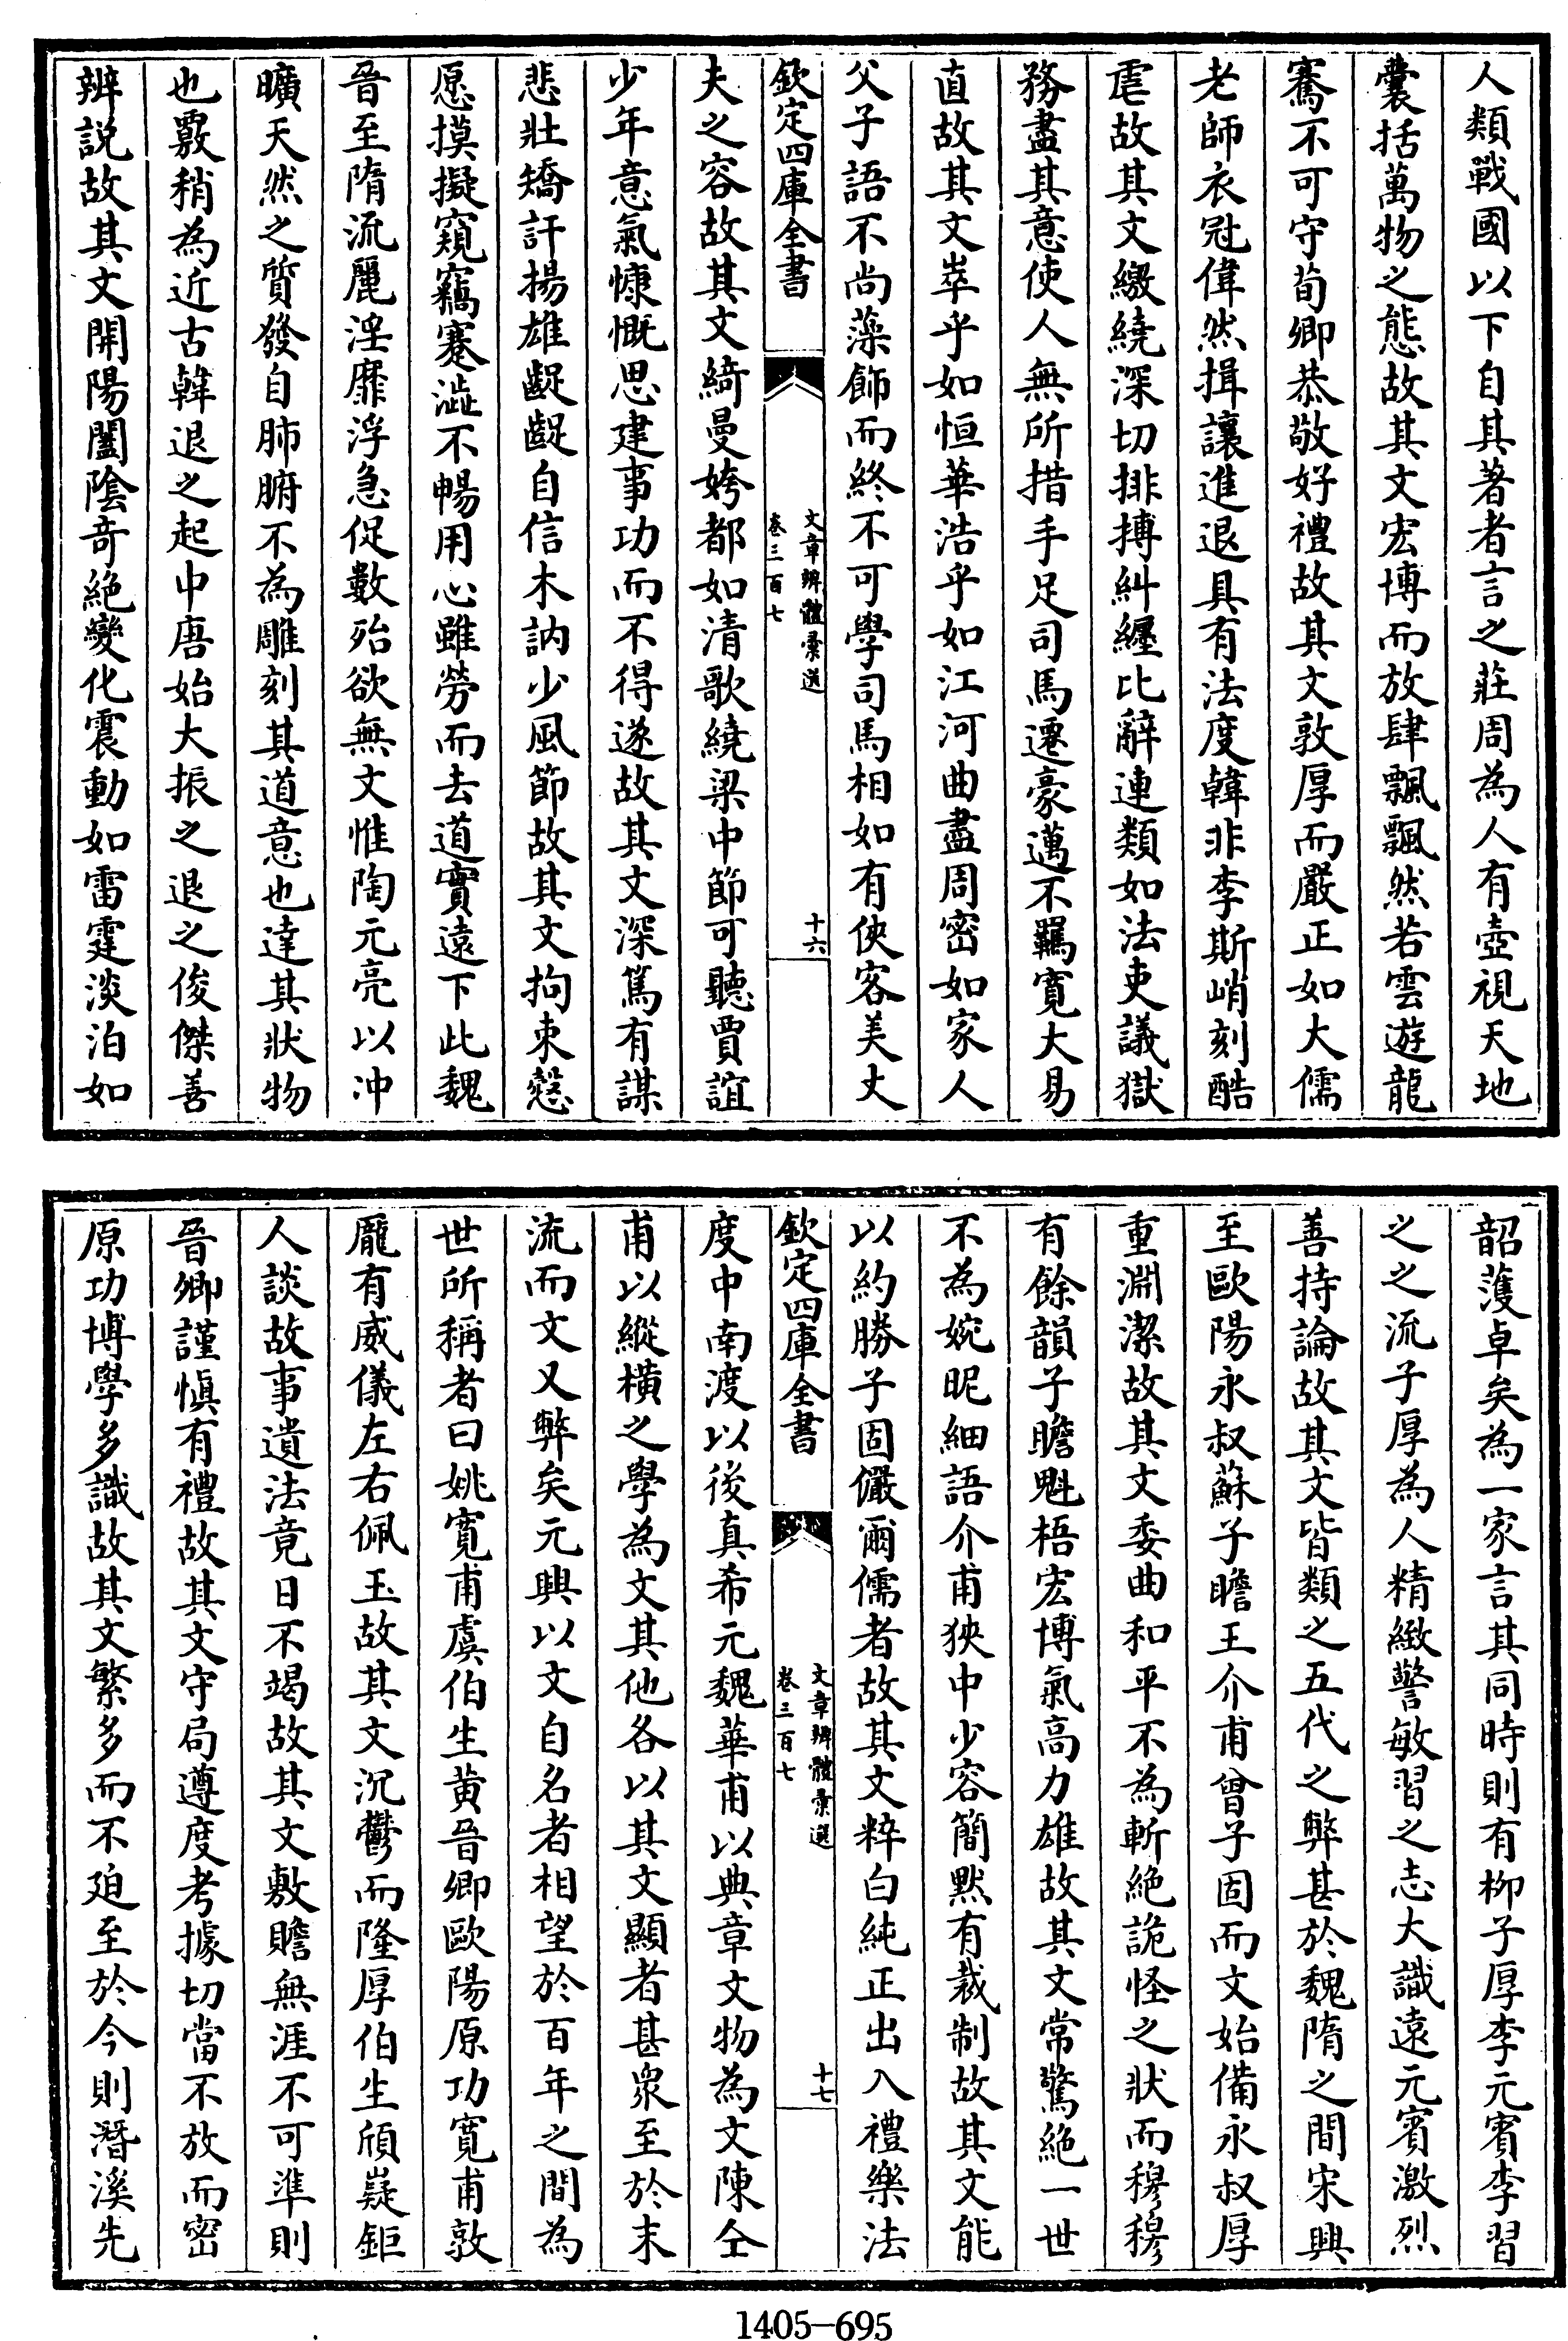 人類戰國以下自其著者言之莊周為人有壺視天地
囊括萬物之態故其文宏博而放肆飄飄然若雲遊龍
騫不可守荀卿恭敬好禮故其文敦厚而嚴正如大儒
老師衣冠偉然揖讓進退具有法度韓非李斯峭刻酷
虐故其文繳繞深切排搏糾纒比辭連類如法吏議獄
務盡其意使人無所措手足司馬遷豪邁不羈寛大易
直故其文崒乎如恒華浩乎如江河曲盡周密如家人
父子語不尚藻飾而終不可學司馬相如有俠客美丈
欽定四庫全書
文章辨體彙選
卷三百七
十六
夫之容故其文綺曼姱都如清歌繞梁中節可聽賈誼
少年意氣慷慨思建事功而不得遂故其文深篤有謀
悲壯矯訐揚雄齪齪自信木訥少風節故其文拘束慤
愿摸擬窺竊蹇澁不暢用心雖勞而去道實遠下此魏
晉至隋流麗淫靡浮急促數殆欲無文惟陶元亮以冲
曠天然之質發自肺腑不為雕刻其道意也達其狀物
也覈稍為近古韓退之起中唐始大振之退之俊傑善
辨說故其文開陽闔陰奇絶變化震動如雷霆淡泊如
韶頀卓矣為一家言其同時則有栁子厚李元賓李習
之之流子厚為人精緻警敏習之志大識遠元賓激烈
善持論故其文皆類之五代之弊甚於魏隋之間宋興
至歐陽永叔蘇子瞻王介甫曾子固而文始備永叔厚
重淵潔故其文委曲和平不為斬絶詭怪之狀而穆穆
有餘韻子瞻魁梧宏博氣高力雄故其文常驚絶一世
不為婉昵細語介甫狹中少容簡黙有裁制故其文能
以約勝子固儼爾儒者故其文粹白純正出入禮樂法
欽定四庫全書
文章辨體彙選
卷三百七
十七
度中南渡以後真希元魏華甫以典章文物為文陳仝
甫以縱橫之學為文其他各以其文顯者甚衆至於末
流而文又弊矣元興以文自名者相望於百年之間為
世所稱者曰姚寛甫虞伯生黄晉卿歐陽原功寛甫敦
龎有威儀左右佩玉故其文沉鬱而隆厚伯生頎嶷鉅
人談故事遺法竟日不竭故其文敷贍無涯不可準則
晉卿謹愼有禮故其文守局遵度考據切當不放而密
原功博學多識故其文繁多而不廹至於今則潛溪先
1405-695